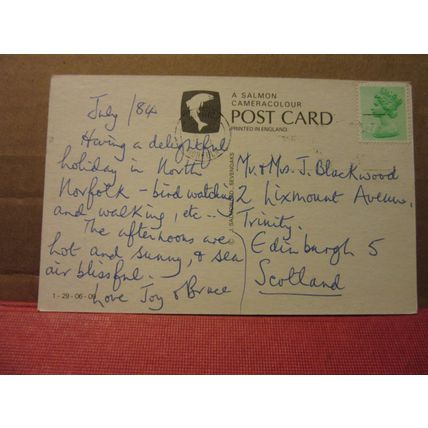 A SALMON
CAMERACOLOUR
POST CARD
PRINTED IN ENGLAND
July /84
Having a delightful
holiday in North
Norfolk - bird watching
and walking, etc..
The afternoons are
hot and sunny, & sea
air blissful.
Love Joy & Bruce
Mr. & Mrs. J. Blackwood
2 Lixmount Avenue,
Trinity.
Edinburgh 5
Scotland
© J. SALMON LTD. SEVENOAKS
1-29-06-09